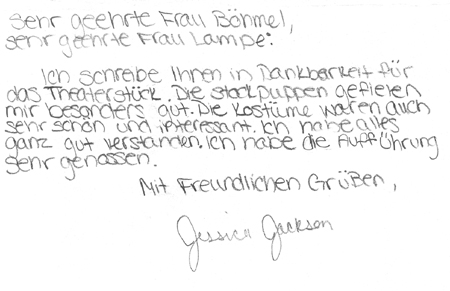 Sehr geehrte Frau Böhmel,
sehr geehrte Frau Lampe:
Ich schreibe Ihnen in Dankbarkeit für
das Theaterstück. Die stockpuppen gefielen
mir besonders gut. Die Kostüme waren auch
sehr schön und interessant. Ich habe alles
ganz gut verstanden. Ich habe die Aufführung
sehr genossen.
Mit Freundlichen Grüßen,
Jessica Jackson